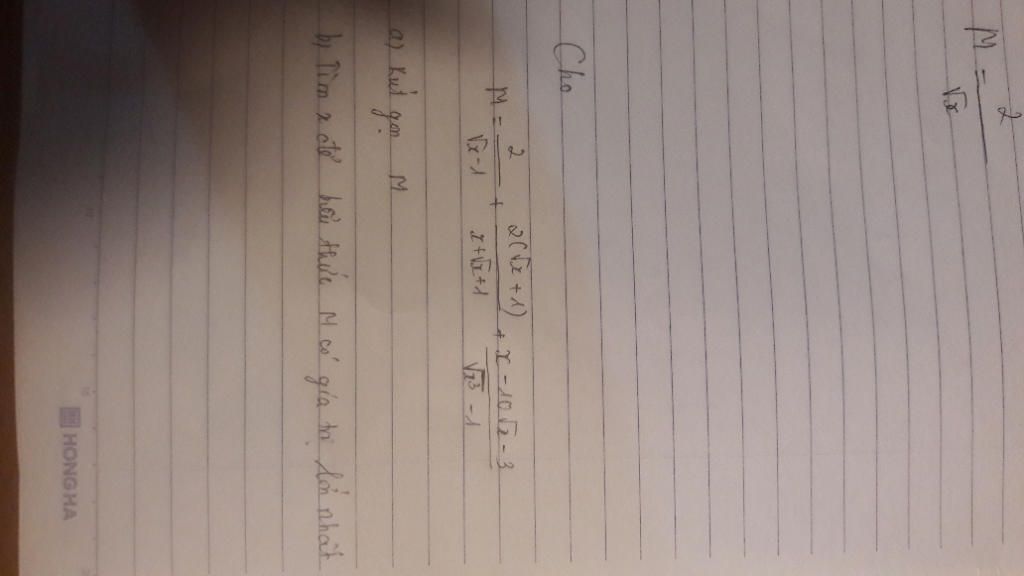 M = 2/√x
Cho
M = 2/(√x-1) + 2(√x+1)/(x+√x+1) + (x-10√x-3)/(√x³-1)
a) Rút gọn M
b) Tìm x để biểu thức M có giá trị lớn nhất
HONG HA